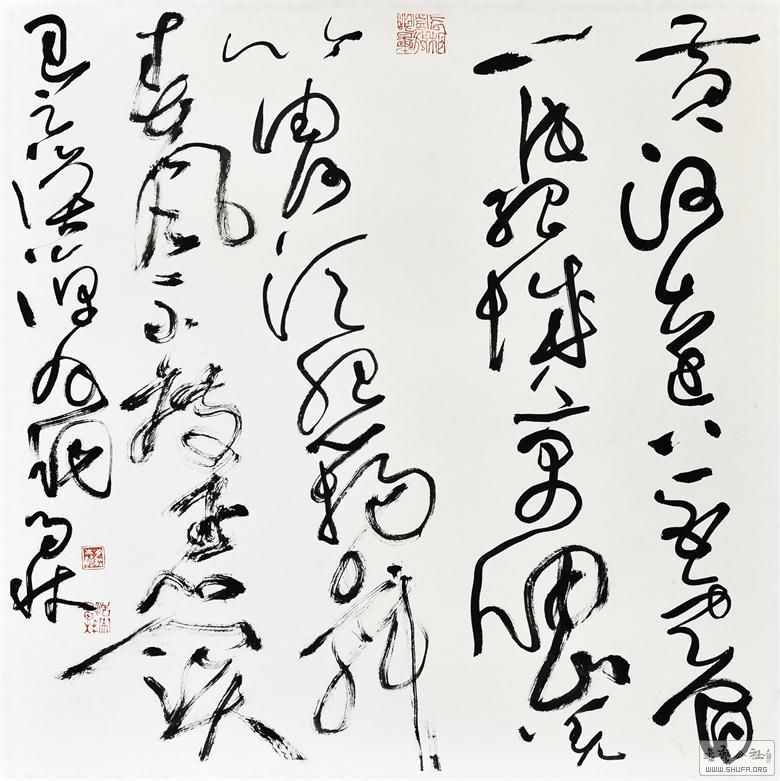 黄河远上白云间
一片孤城万仞山羌
笛何须怨杨柳
春风不度玉门关
王之涣凉州词
WWW.SHUFA.ORG